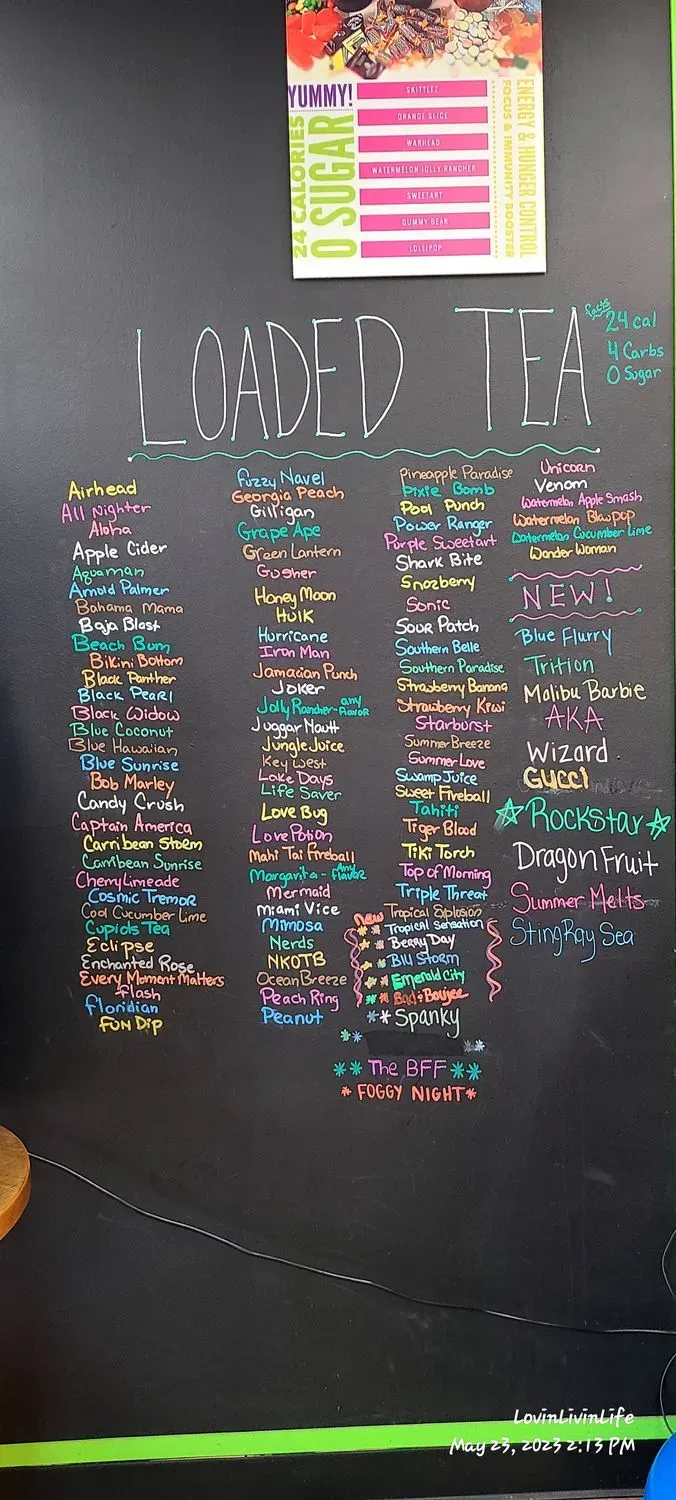 YUMMY!
24 CALORIES
0 SUGAR
SKITTLEZ
ORANGE SLICE
WARHEAD
WATERMELON JOLLY RANCHER
SWEETART
GUMMY BEAR
LOLLIPOP
ENERGY & HUNGER CONTROL
FOCUS & IMMUNITY BOOSTER
LOADED TEA
facts
24 cal
4 Carbs
0 Sugar
Airhead
All Nighter
Aloha
Apple Cider
Aquaman
Arnold Palmer
Bahama Mama
Baja Blast
Beach Bum
Bikini Bottom
Black Panther
Black Pearl
Black Widow
Blue Coconut
Blue Hawaiian
Blue Sunrise
Bob Marley
Candy Crush
Captain America
Carribean Storm
Carribean Sunrise
Cherry Limeade
Cosmic Tremor
Cool Cucumber Lime
Cupids Tea
Eclipse
Enchanted Rose
Every Moment Matters
Flash
Floridian
Fun Dip
Fuzzy Navel
Georgia Peach
Gilligan
Grape Ape
Green Lantern
Gusher
Honey Moon
Hulk
Hurricane
Iron Man
Jamacian Punch
Joker
Jolly Rancher - any flavor
Juggar Nautt
Jungle Juice
Key West
Lake Days
Life Saver
Love Bug
Love Potion
Mahi Tai Fireball
Margarita - Any flavor
Mermaid
Miami Vice
Mimosa
Nerds
NKOTB
Ocean Breeze
Peach Ring
Peanut
Pineapple Paradise
Pixie Bomb
Pool Punch
Power Ranger
Purple Sweetart
Shark Bite
Snozberry
Sonic
Sour Patch
Southern Belle
Southern Paradise
Strawberry Banana
Strawberry Kiwi
Starburst
Summer Breeze
Summer Love
Swamp Juice
Sweet Fireball
Tahiti
Tiger Blood
Tiki Torch
Top of Morning
Triple Threat
Tropical Explosion
New
** Tropical Sensation
** Berry Day
** Blu Storm
** Emerald City
** Bad & Boujee
** Spanky
** The BFF **
* FOGGY NIGHT *
Unicorn
Venom
Watermelon Apple Smash
Watermelon Blowpop
Watermelon Cucumber Lime
Wonder Woman
NEW!
Blue Flurry
Trition
Malibu Barbie
AKA
Wizard
GUCCI
☆ Rockstar ☆
Dragon Fruit
Summer Melts
StingRay Sea
LovinLivinLife
May 23, 2023 2:13 PM